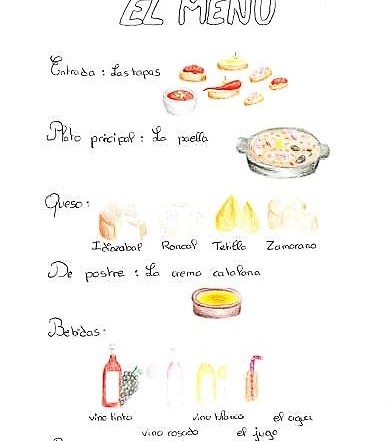 EL MENÚ
Entrada : Las tapas
Plato pricipal : La paella
Queso :
Idiazabal Roncal Tetilla Zamorano
De postre : La crema catalana
Bebidas :
vino tinto vino blanco el agua
vino rosado el jugo